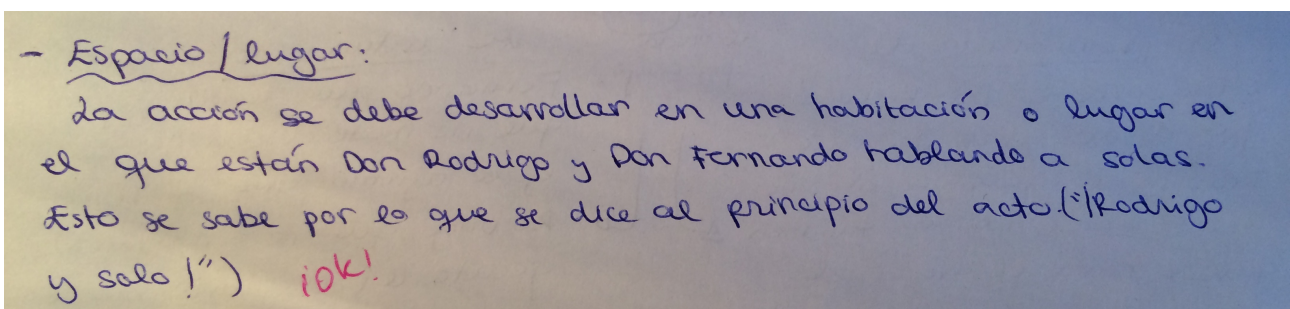 - Espacio / lugar:
La acción se debe desarrollar en una habitación o lugar en
el que están Don Rodrigo y Don Fernando hablando a solas.
Esto se sabe por lo que se dice al principio del acto. ("¡Rodrigo
y solo!") ¡OK!